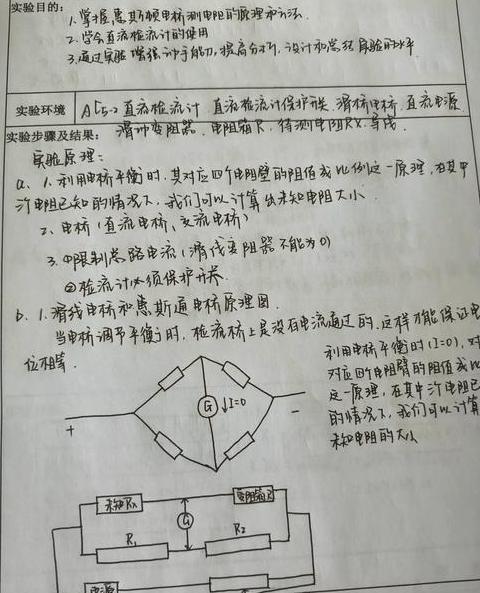 实验目的：
1.掌握惠斯顿电桥测电阻的原理和方法.
2.学会直流检流计的使用
3.通过实验增强动手能力,提高分析,设计和总结实验的水平
实验环境
AC5-2直流检流计 直流检流计保护开关.滑桥电桥.直流电源
滑动变阻器.电阻箱R.待测电阻RX.导线.
实验步骤及结果：
实验原理：
a、1.利用电桥平衡时,其对应四个电阻臂的阻值成比例这一原理,在其中
个电阻已知的情况下,我们可以计算出未知电阻大小.
2、电桥(直流电桥、交流电桥)
3.①限制总路电流(滑线变阻器不能为0)
②检流计必须保护开关.
b、1.滑线电桥和惠斯通电桥原理图.
当电桥调节平衡时,检流桥上是没有电流通过的.这样才能保证电
位相等.
利用电桥平衡时(I=0),对
对应四个电阻臂的阻值成比
这一原理,在其中个电阻已
的情况下,我们可以计算
未知电阻的大小
G
↓I=0
+
−
未知Rx
变阻箱R
G
R1
R2
电源